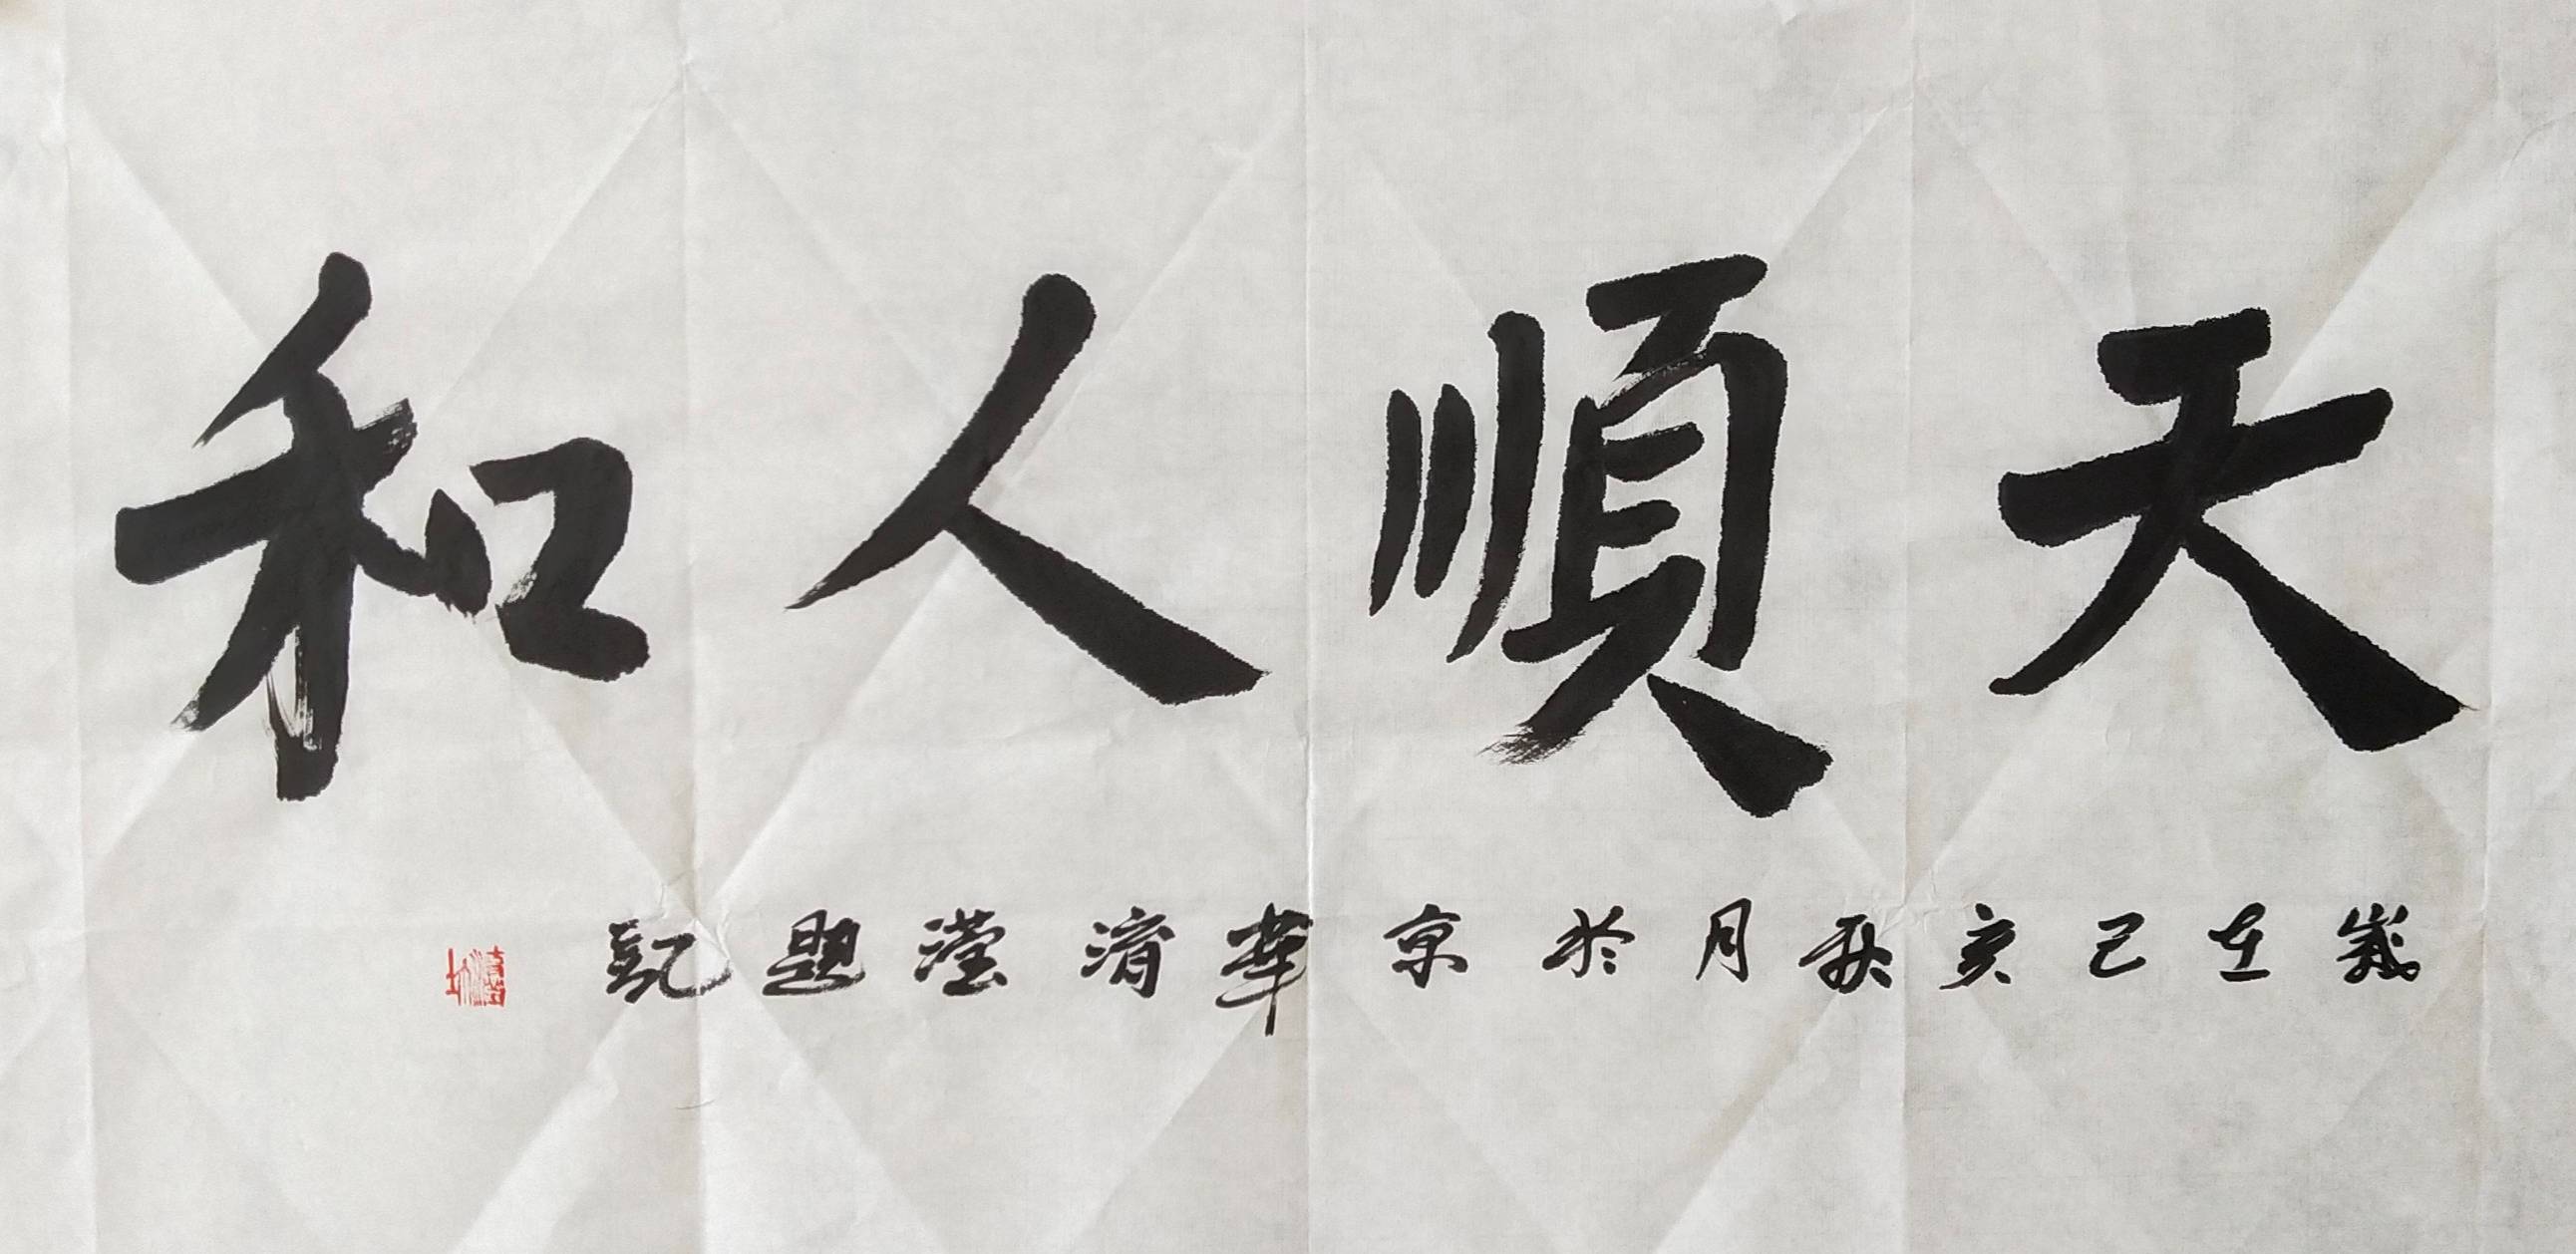 天順人和
歲在己亥秋月於京華淯瀅題記